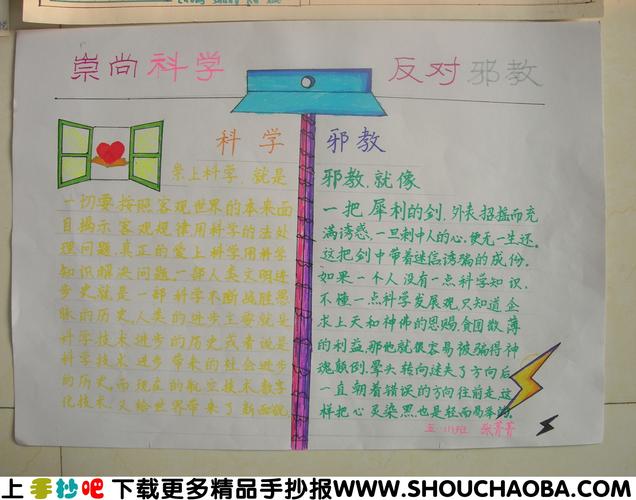 崇尚科学 反对邪教
科学 邪教
崇上科学,就是
一切要按照客观世界的本来面
目揭示客观规律用科学的法处
理问题,真正的爱上科学用科学
知识解决问题,一部人类文明进
步史,就是一部科学不断战胜愚
昧的历史,人类的进步主要就是
科学技术进步的历史或者说是
科学技术进步带来的社会进步
的历史,而现在的航空技术,数字
化技术,又给世界带来了新面貌
邪教,就像
一把犀利的剑,外表招摇而充
满诱惑,一旦刺中人的心,便无一生还。
这把剑中带着迷信诱骗的成份。
如果一个人没有一点科学知识,
不懂一点科学发展观,只知道企
求上天和神佛的恩赐,贪图散薄
的利益,那他就很容易被骗得神
魂颠倒,晕头转向迷失了方向后
一直朝着错误的方向往前走,这
样把心灵染黑,也是轻而易举的。
五·(1)班 张菁菁
上手抄吧 下载更多精品手抄报WWW.SHOUCHAOBA.COM